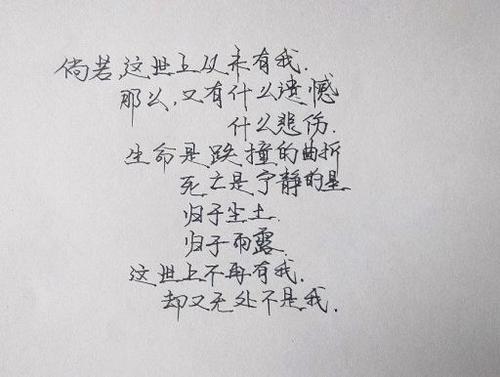 倘若,这世上从未有我.
那么,又有什么遗憾
什么悲伤.
生命是跌撞的曲折
死亡是宁静的星
归于尘土.
归于雨露.
这世上不再有我.
却又无处不是我.